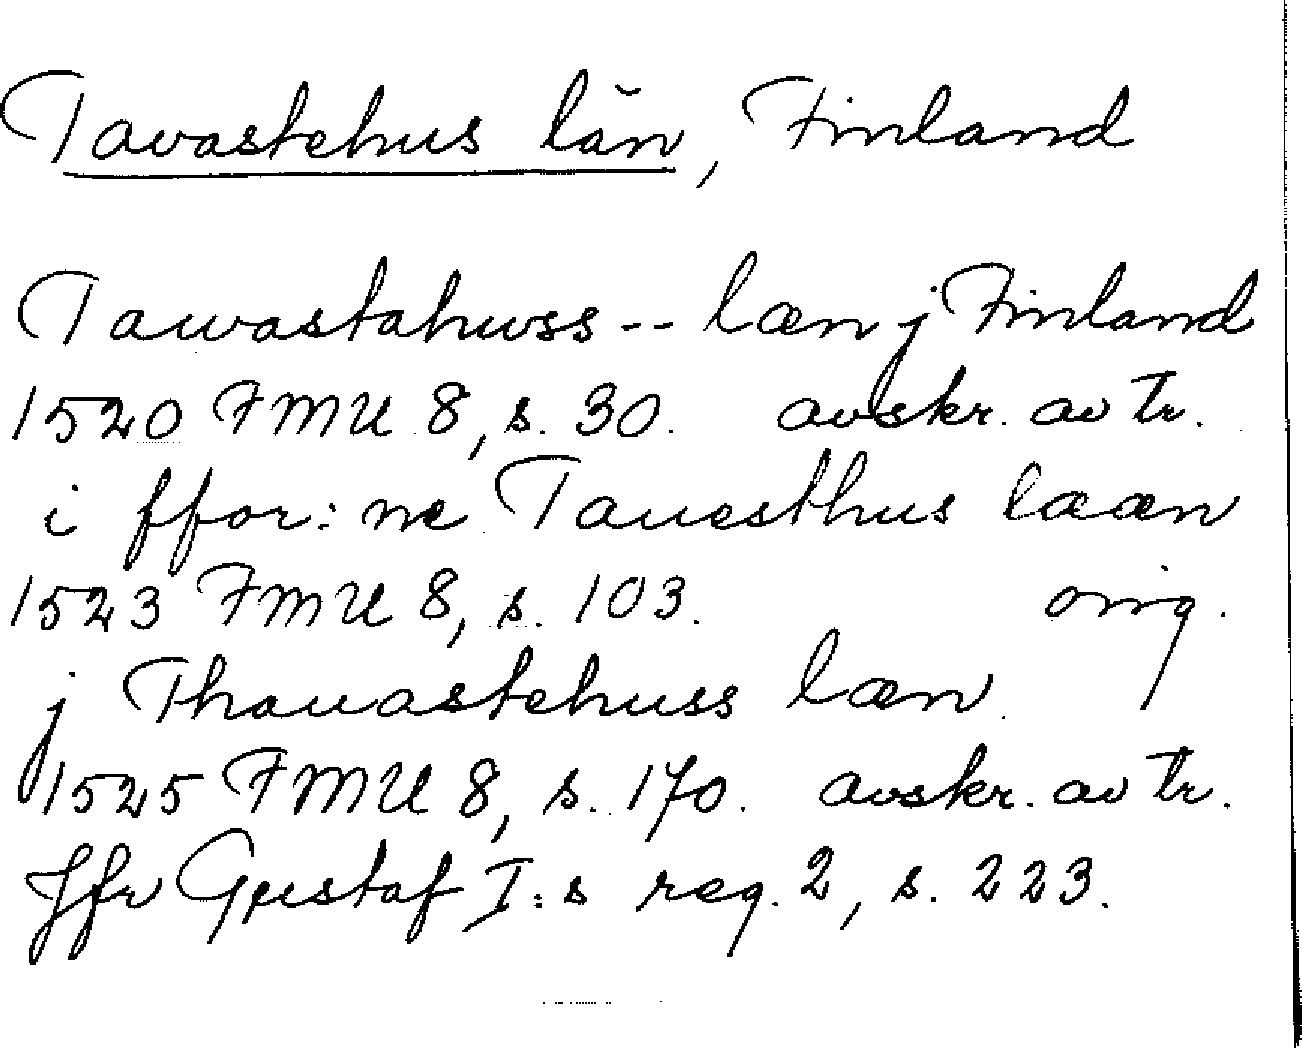 Tavastehus län, Finland
Tawastahwss -- læn j Finland
1520 FMU 8, s. 30. avskr. av tr.
i ffor: ne Tauesthus lææn
1523 FMU 8, s. 103. orig.
j Thauastehuss læn
1525 FMU 8, s. 170. avskr. av tr.
Jfr Gustaf I:s reg. 2, s. 223.